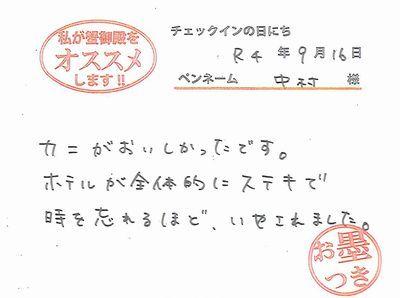 私が蟹御殿を
オススメ
します!!
チェックインの日にち
R4 年 9月 16日
ペンネーム 中村 様
カニがおいしかったです。
ホテルが全体的にステキで
時を忘れるほど、いやされました。
お墨
つき